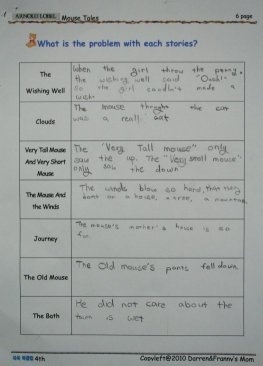 ARNOLD LOBEL Mouse Tales
6 page
What is the problem with each stories?
The
Wishing Well
When the girl throw the penny,
the wishing well said "Ouch!"
So the girl couldn't made a
wish.
Clouds
The mouse thought the cat
was a reall cat
Very Tall Mouse
And Very Short
Mouse
The "Very Tall mouse" only
saw the up. The "Very small mouse"
only saw the down
The Mouse And
the Winds
The winds blow so hard, that they
boat on a house, a tree, a mountain
Journey
The mouse's mother's house is so
far
The Old Mouse
The Old mouse's pants fell down.
The Bath
He did not care about the
town is wet
4th
Copyleft@2010 Darren&Franny's Mom